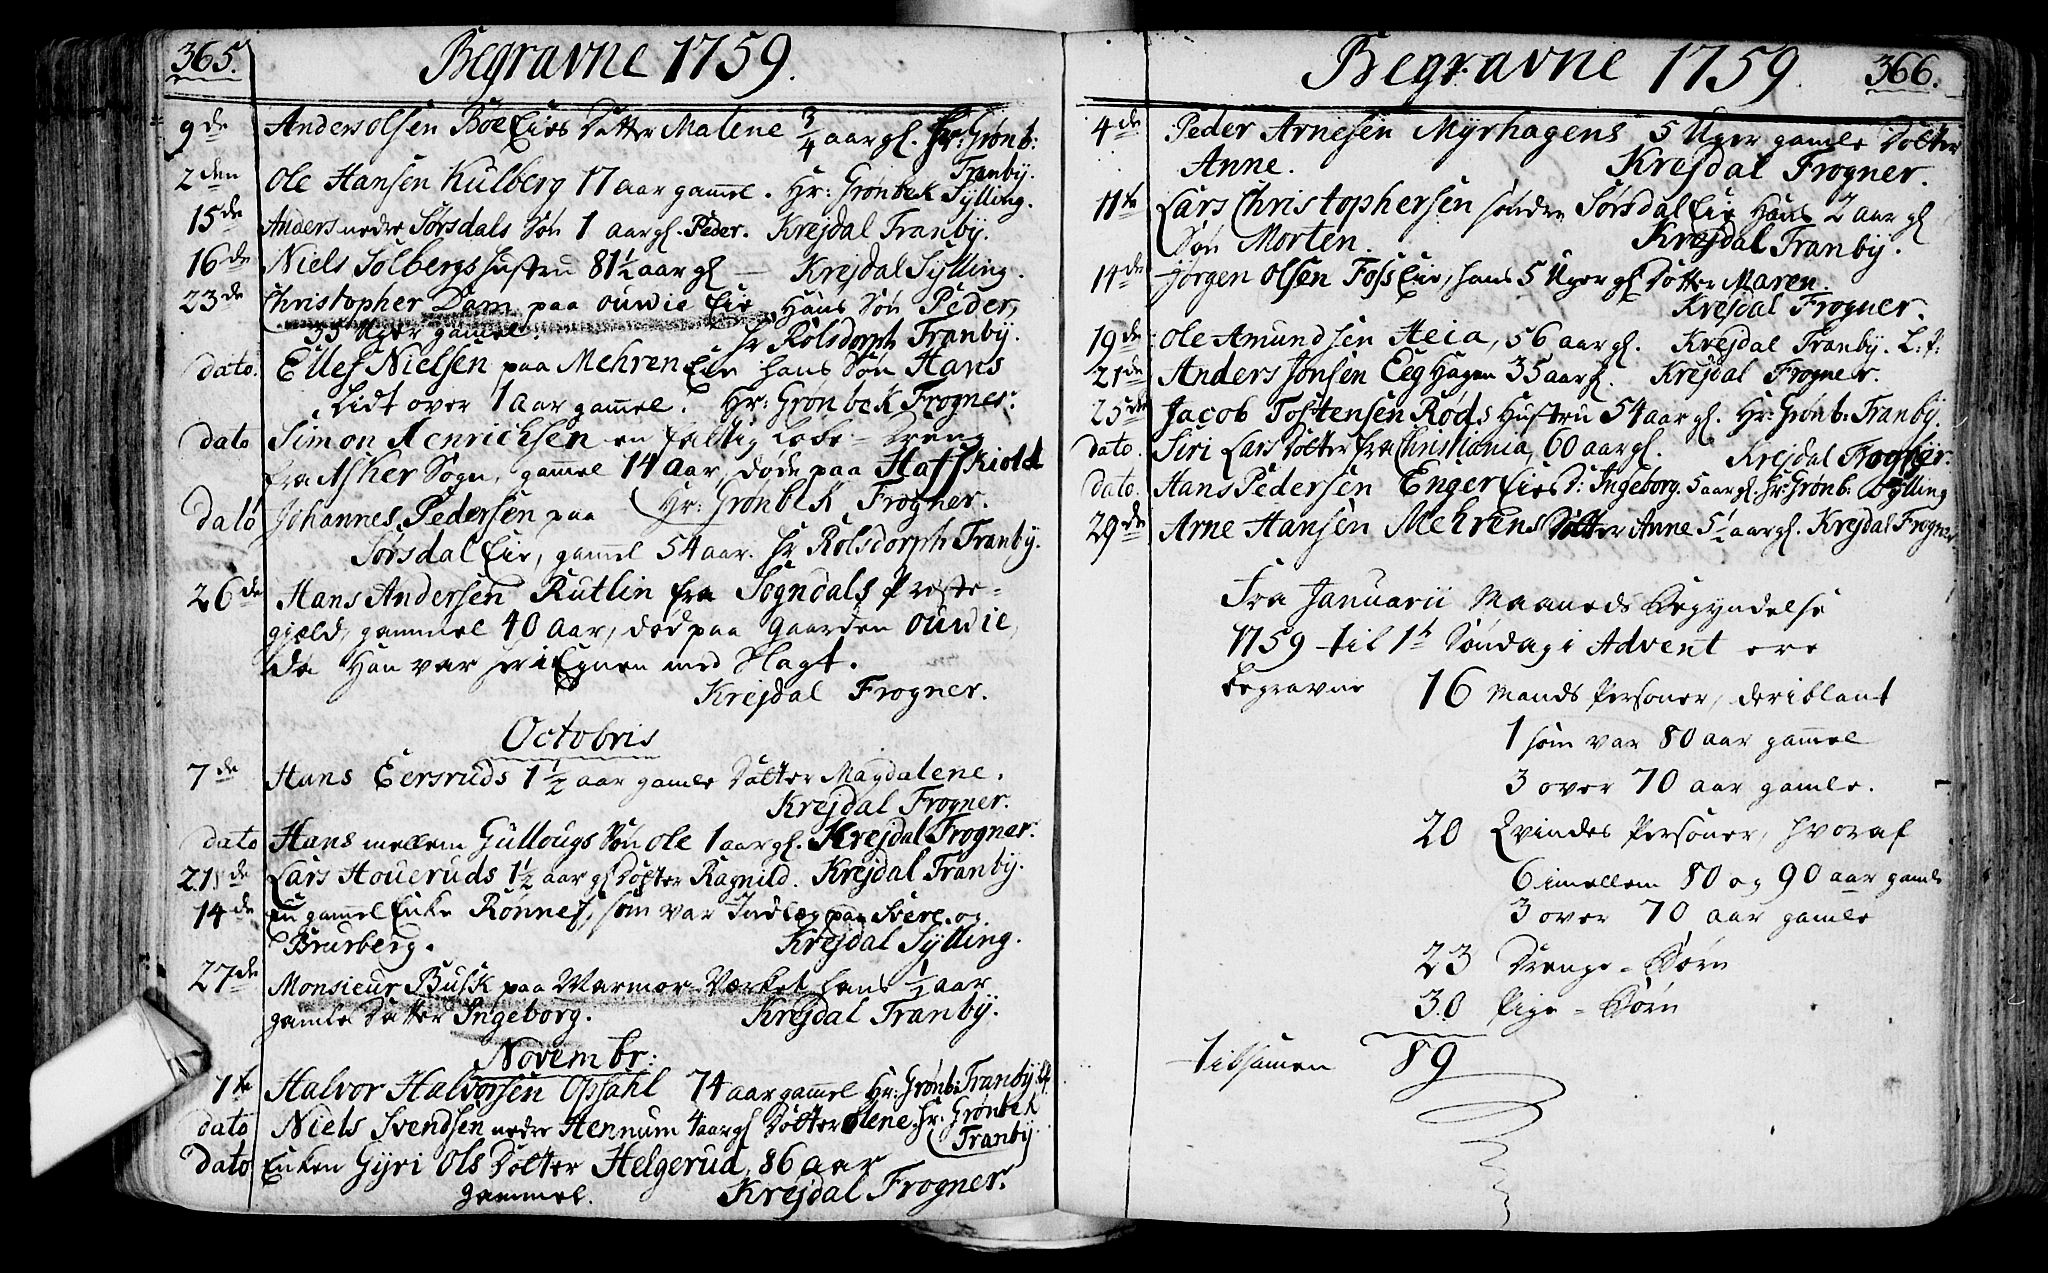 365.
Begravne 1759.
9de Anders Olsen Böe Eies Datter Malene 3/4 aar gl. Hr: Grønb:
Tranby.
2den Ole Hansen Kulberg 17 aar gammel. Hr: Grønbek Sylling.
15de Anders nedre Sørsdals Søn 1 aar gl. Peder. Krejdal Tranby.
16de Niels Solbergs Hustru 81 1/2 aar gl — Krejdal Sylling.
23de Christopher Dam paa Ouwie Eie, Hans Søn Peder,
33 Uger gammel. Hr Rolsdorph Tranby.
dato. Ellef Nielsen paa Mehren Eie hans Søn Hans
Lidt over 1 Aar gammel. Hr: Grønbek Frogner.
dato Simon Henrichsen en fattig Løbe-Dreng
fra Asker Sogn, gammel 14 Aar, døde paa Hafskiold
Hr: Grønbek Frogner.
dato Johannes Pedersen paa
Sørsdal Eie, gammel 54 aar. Hr Rolsdorph Tranby.
26de Hans Andersen Rutlin fra Sogndals Preste-
gjeld, gammel 40 Aar, død paa Gaarden Ouwie,
da Han var her i Egnen med Slagt.
Krejdal Frogner.
Octobris
7de Hans Eersruds 1 1/2 aar gamle Datter Magdalene.
Krejdal Frogner.
dato Hans mellem Gullougs Søn Ole 1 aar gl. Krejdal Frogner.
21de Lars Houeruds 1 1/2 aar gl Dotter Ragnild. Krejdal Tranby.
14de En gamel Enke Rønnef, som var Indlæg paa Svere og
Brurberg. Krejdal Sylling.
27de Monsieur Busk paa Marmor-Værket hans 1/2 aar
gamle Datter Ingeborg. Krejdal Tranby.
Novembr:
1te Halvor Halvorsen Opsahl 74 aar gammel Hr: Grønb: Tranby.
dato Niels Svendsen nedre Hennum 4 aar gl Dotter Olene. Hr: Grønbek
Tranby.
dato Enken Gyri Ols Dotter Helgerud, 86 aar
gammel. Krejdal Frogner.
Begravne 1759. 366.
4de Peder Arnesen Myrhagens 5 Uger gamle Dotter
Anne. Krejdal Frogner.
11te Lars Christophersen søndre Sørsdal Eie Hans 2 aar gl
Søn Morten. Krejdal Tranby.
14de Jørgen Olsen Foss Eie, hans 5 Uger gl Dotter Maren.
Krejdal Frogner.
19de Ole Amundsen Heia, 56 aar gl. Krejdal Tranby. L: f:
21de Anders Jonsen Eeg Hagen 35 aar gl. Krejdal Frogner.
25de Jacob Tostensen Røds Hustru 54 aar gl. Hr: Grønb: Tranby.
dato. Siri Lars Dotter fra Christiania, 60 aar gl. Krejdal Frogner.
dato. Hans Pedersen Enger Eies D: Ingeborg. 5 aar gl. Hr: Grønb: Sylling
29de Arne Hansen Mehrens Dotter Anne 5 1/2 aar gl. Krejdal Frogner.
Fra Januarii Maaneds Begyndelse
1759 til 1te Søndag i Advent ere
begravne 16 Mands Personer, deriblant
1 som var 80 aar gammel
3 over 70 aar gamle.
20 Qvindes Personer, hvoraf
6 imellem 80 og 90 aar gamle
3 over 70 aar gamle
23 Drenge-Børn
30 Pige-Børn
tilsamen 89